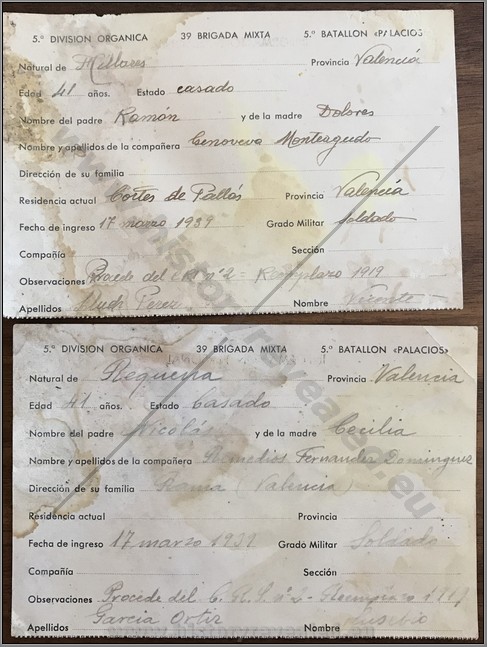 5.ª DIVISION ORGANICA 39 BRIGADA MIXTA 5.º BATALLON «PALACIOS
Natural de Millares Provincia Valencia
Edad 41 años. Estado casado
Nombre del padre Ramón y de la madre Dolores
Nombre y apellidos de la compañera Cenoveva Monteagudo
Dirección de su familia
Residencia actual Cortes de Pallás Provincia Valencia
Fecha de ingreso 17 marzo 1939 Grado Militar Soldado
Compañía Sección
Observaciones Procede del nº 2 = Reemplazo 1919
Apellidos Perez Nombre Vicente
5.ª DIVISION ORGANICA 39 BRIGADA MIXTA 5.º BATALLON «PALACIOS»
Natural de Requena Provincia Valencia
Edad 41 años. Estado Casado
Nombre del padre Nicolás y de la madre Cecilia
Nombre y apellidos de la compañera Remedios Fernandez Dominguez
Dirección de su familia (Valencia)
Residencia actual Provincia
Fecha de ingreso 17 marzo 1939 Grado Militar Soldado
Compañía Sección
Observaciones Procede del C. R. I. nº 2 - Reemplazo 1919
Apellidos Garcia Ortiz Nombre Eusebio